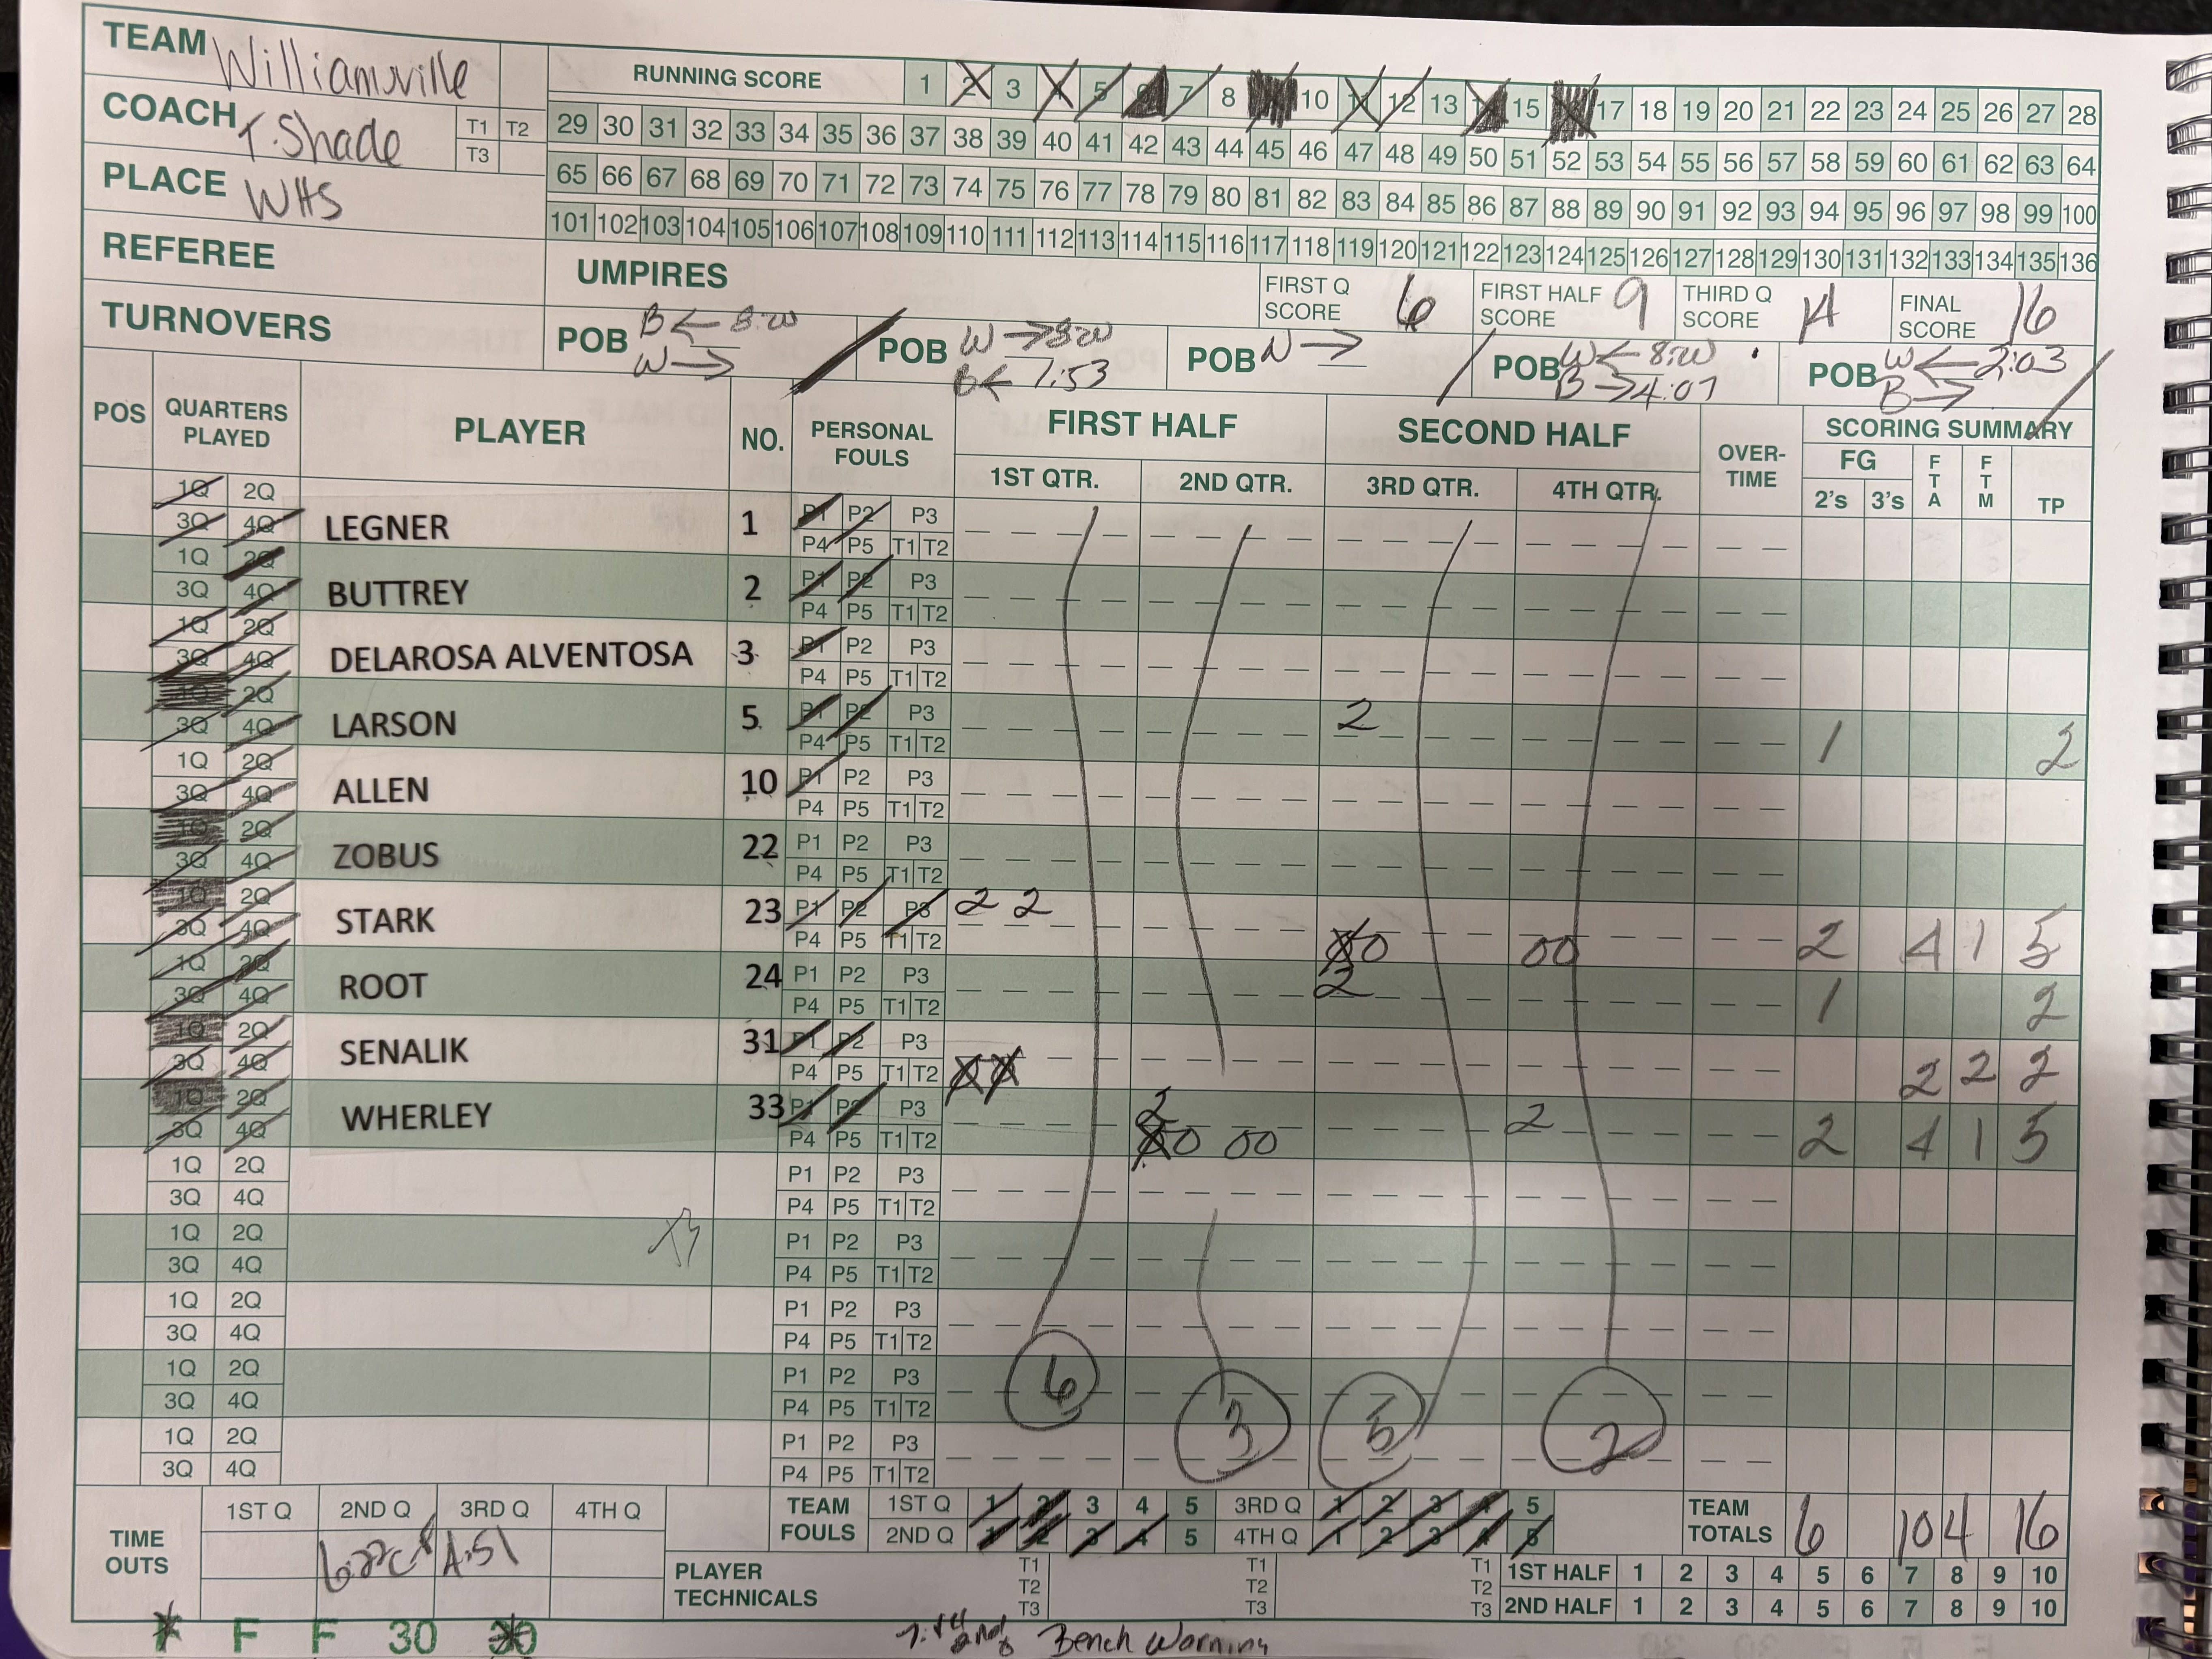 TEAM Williamsville
RUNNING SCORE 1 2 3 4 5 6 7 8 10 11 12 13 14 15 17 18 19 20 21 22 23 24 25 26 27 28
COACH T. Shade T1 T2 T3
29 30 31 32 33 34 35 36 37 38 39 40 41 42 43 44 45 46 47 48 49 50 51 52 53 54 55 56 57 58 59 60 61 62 63 64
PLACE WHS
65 66 67 68 69 70 71 72 73 74 75 76 77 78 79 80 81 82 83 84 85 86 87 88 89 90 91 92 93 94 95 96 97 98 99 100
101 102 103 104 105 106 107 108 109 110 111 112 113 114 115 116 117 118 119 120 121 122 123 124 125 126 127 128 129 130 131 132 133 134 135 136
REFEREE
UMPIRES
FIRST Q SCORE 6 FIRST HALF SCORE 9 THIRD Q SCORE 14 FINAL SCORE 16
TURNOVERS
POB B ← 8:00 W →
POB W → 8:00 B ← 7:53
POB N →
POB W ← 8:00 B → 4:07
POB W ← 2:03 B →
POS QUARTERS PLAYED PLAYER NO. PERSONAL FOULS FIRST HALF SECOND HALF OVER-TIME SCORING SUMMARY
1ST QTR. 2ND QTR. 3RD QTR. 4TH QTR. FG 2's 3's FTA FTM TP
1Q 2Q 3Q 4Q LEGNER 1 P1 P2 P3 P4 P5 T1 T2
1Q 2Q 3Q 4Q BUTTREY 2 P1 P2 P3 P4 P5 T1 T2
1Q 2Q 3Q 4Q DELAROSA ALVENTOSA 3 P1 P2 P3 P4 P5 T1 T2
1Q 2Q 3Q 4Q LARSON 5 P1 P2 P3 P4 P5 T1 T2 2 1 2
1Q 2Q 3Q 4Q ALLEN 10 P1 P2 P3 P4 P5 T1 T2
1Q 2Q 3Q 4Q ZOBUS 22 P1 P2 P3 P4 P5 T1 T2
1Q 2Q 3Q 4Q STARK 23 P1 P2 P3 P4 P5 T1 T2 2 2 0 00 2 4 1 5
1Q 2Q 3Q 4Q ROOT 24 P1 P2 P3 P4 P5 T1 T2 2 1 2
1Q 2Q 3Q 4Q SENALIK 31 P1 P2 P3 P4 P5 T1 T2 2 2 2
1Q 2Q 3Q 4Q WHERLEY 33 P1 P2 P3 P4 P5 T1 T2 2 0 00 2 2 4 1 5
1Q 2Q 3Q 4Q P1 P2 P3 P4 P5 T1 T2
1Q 2Q 3Q 4Q P1 P2 P3 P4 P5 T1 T2
1Q 2Q 3Q 4Q P1 P2 P3 P4 P5 T1 T2
1Q 2Q 3Q 4Q P1 P2 P3 P4 P5 T1 T2
1Q 2Q 3Q 4Q P1 P2 P3 P4 P5 T1 T2
6 3 5 2
TIME OUTS 1ST Q 2ND Q 3RD Q 4TH Q
4:51
TEAM FOULS 1ST Q 1 2 3 4 5 3RD Q 1 2 3 4 5
2ND Q 1 2 3 4 5 4TH Q 1 2 3 4 5
TEAM TOTALS 6 10 4 16
PLAYER TECHNICALS T1 T2 T3 T1 T2 T3 T1 T2 T3
1ST HALF 1 2 3 4 5 6 7 8 9 10
2ND HALF 1 2 3 4 5 6 7 8 9 10
F F F 30 30
2nd Bench Warning